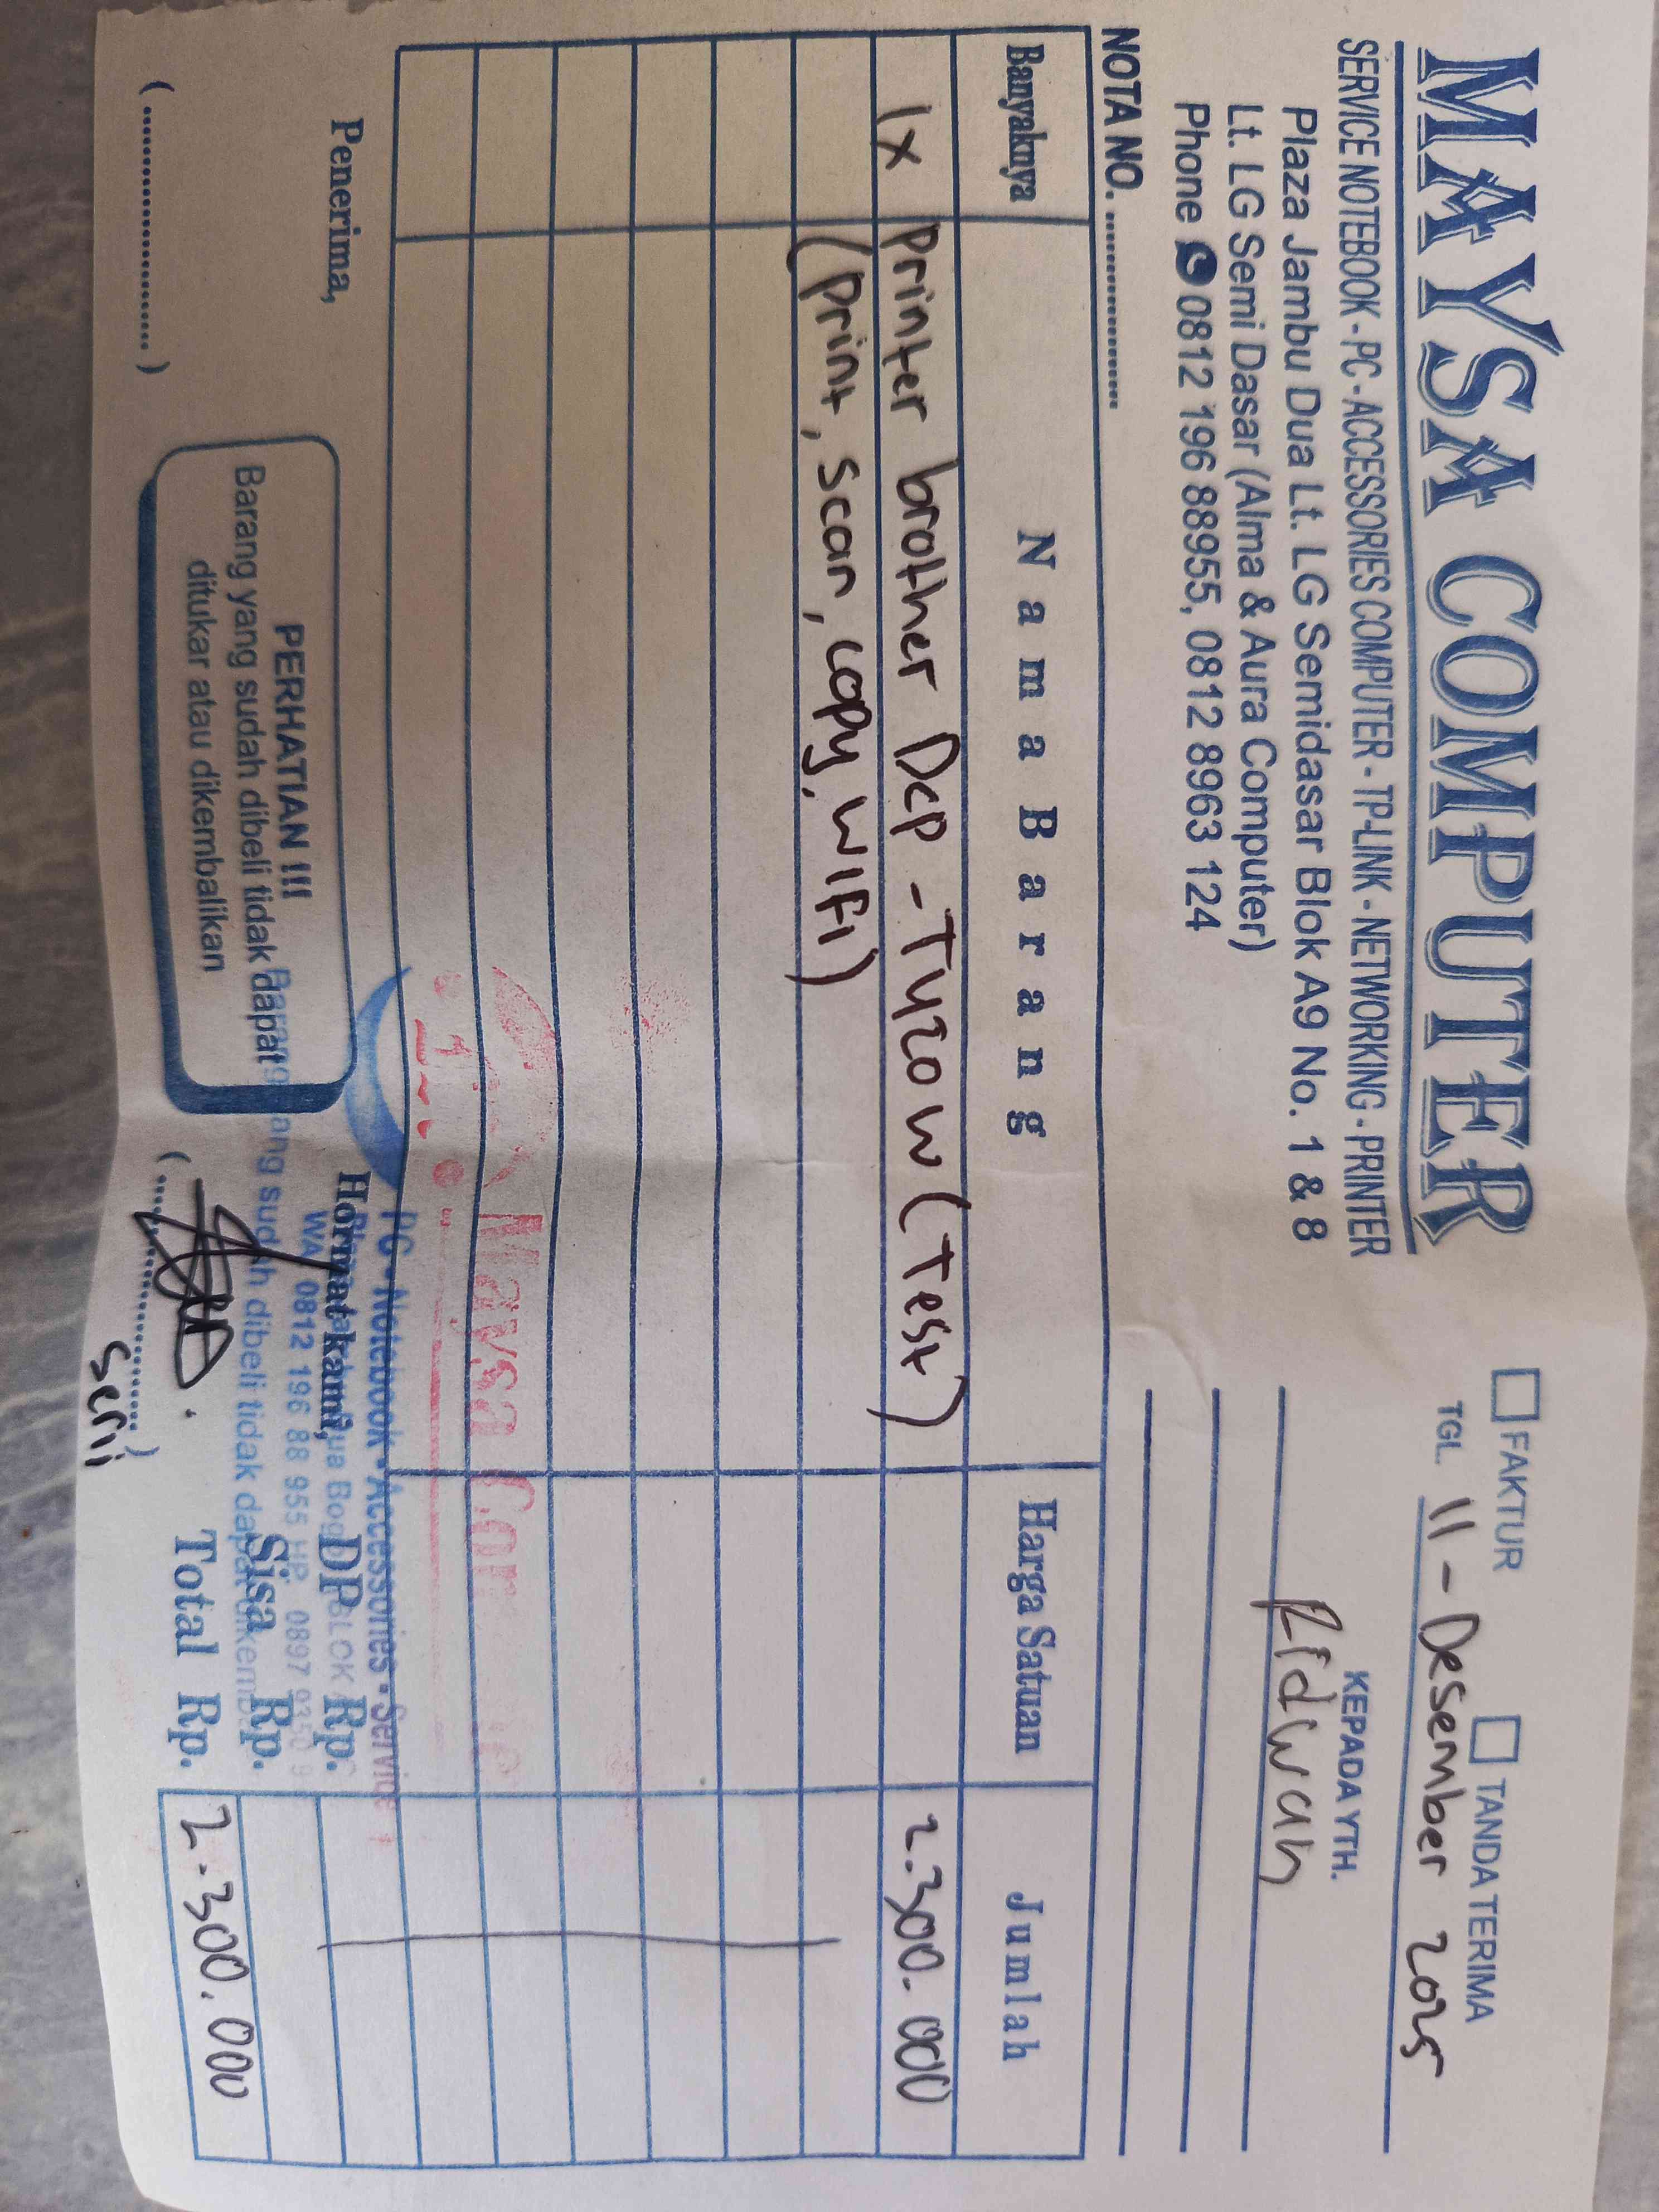 MAYSA COMPUTER
SERVICE NOTEBOOK - PC - ACCESSORIES COMPUTER - TP-LINK - NETWORKING - PRINTER
Plaza Jambu Dua Lt. LG Semidasar Blok A9 No. 1 & 8
Lt. LG Semi Dasar (Alma & Aura Computer)
Phone 0812 196 88955, 0812 8963 124
NOTA NO. ....................
FAKTUR TANDA TERIMA
TGL. 11 - Desember 2025
KEPADA YTH.
Ridwan
Banyaknya Nama Barang Harga Satuan Jumlah
1x Printer brother Dcp - T420w (Test) 2.300.000
(Print, scan, copy, WIFI)
Maysa Com
PC • Notebook • Accessories • Service
WA 0812 196 88 955 HP. 0897 9350
Barang yang sudah dibeli tidak dapat dikem
Penerima,
(........................)
PERHATIAN !!!
Barang yang sudah dibeli tidak dapat
ditukar atau dikembalikan
Hormat kami,
(........................)
Serii
DP Rp.
Sisa Rp.
Total Rp. 2.300.000